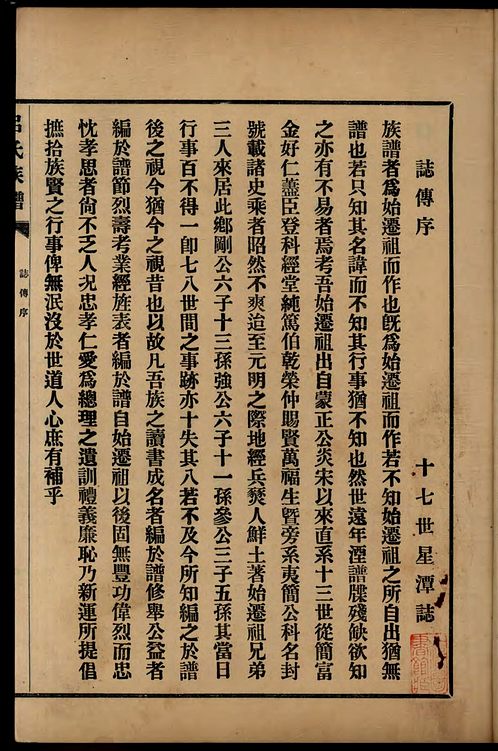 誌傳序
十七世星潭誌
族譜者爲始遷祖而作也旣爲始遷祖而作若不知始遷祖之所自出猶無
譜也若只知其名諱而不知其行事猶不知也然世遠年湮譜牒殘缺欲知
之亦有不易者焉考吾始遷祖出自蒙正公炎宋以來直系十三世從簡富
金好仁藎臣登科經堂純篤伯乾榮仲賜賢萬福生曁旁系夷簡公科名封
號載諸史乘者昭然不爽迨至元明之際地經兵燹人鮮土著始遷祖兄弟
三人來居此鄉剛公六子十三孫強公六子十一孫參公三子五孫其當日
行事百不得一卽七八世間之事跡亦十失其八若不及今所知編之於譜
後之視今猶今之視昔也以故凡吾族之讀書成名者編於譜修舉公益者
編於譜節烈壽考業經旌表者編於譜自始遷祖以後固無豐功偉烈而忠
忱孝思者尙不乏人況忠孝仁愛爲總理之遺訓禮義廉恥乃新運所提倡
摭拾族賢之行事俾無泯沒於世道人心庶有補乎
呂氏族譜
誌傳序